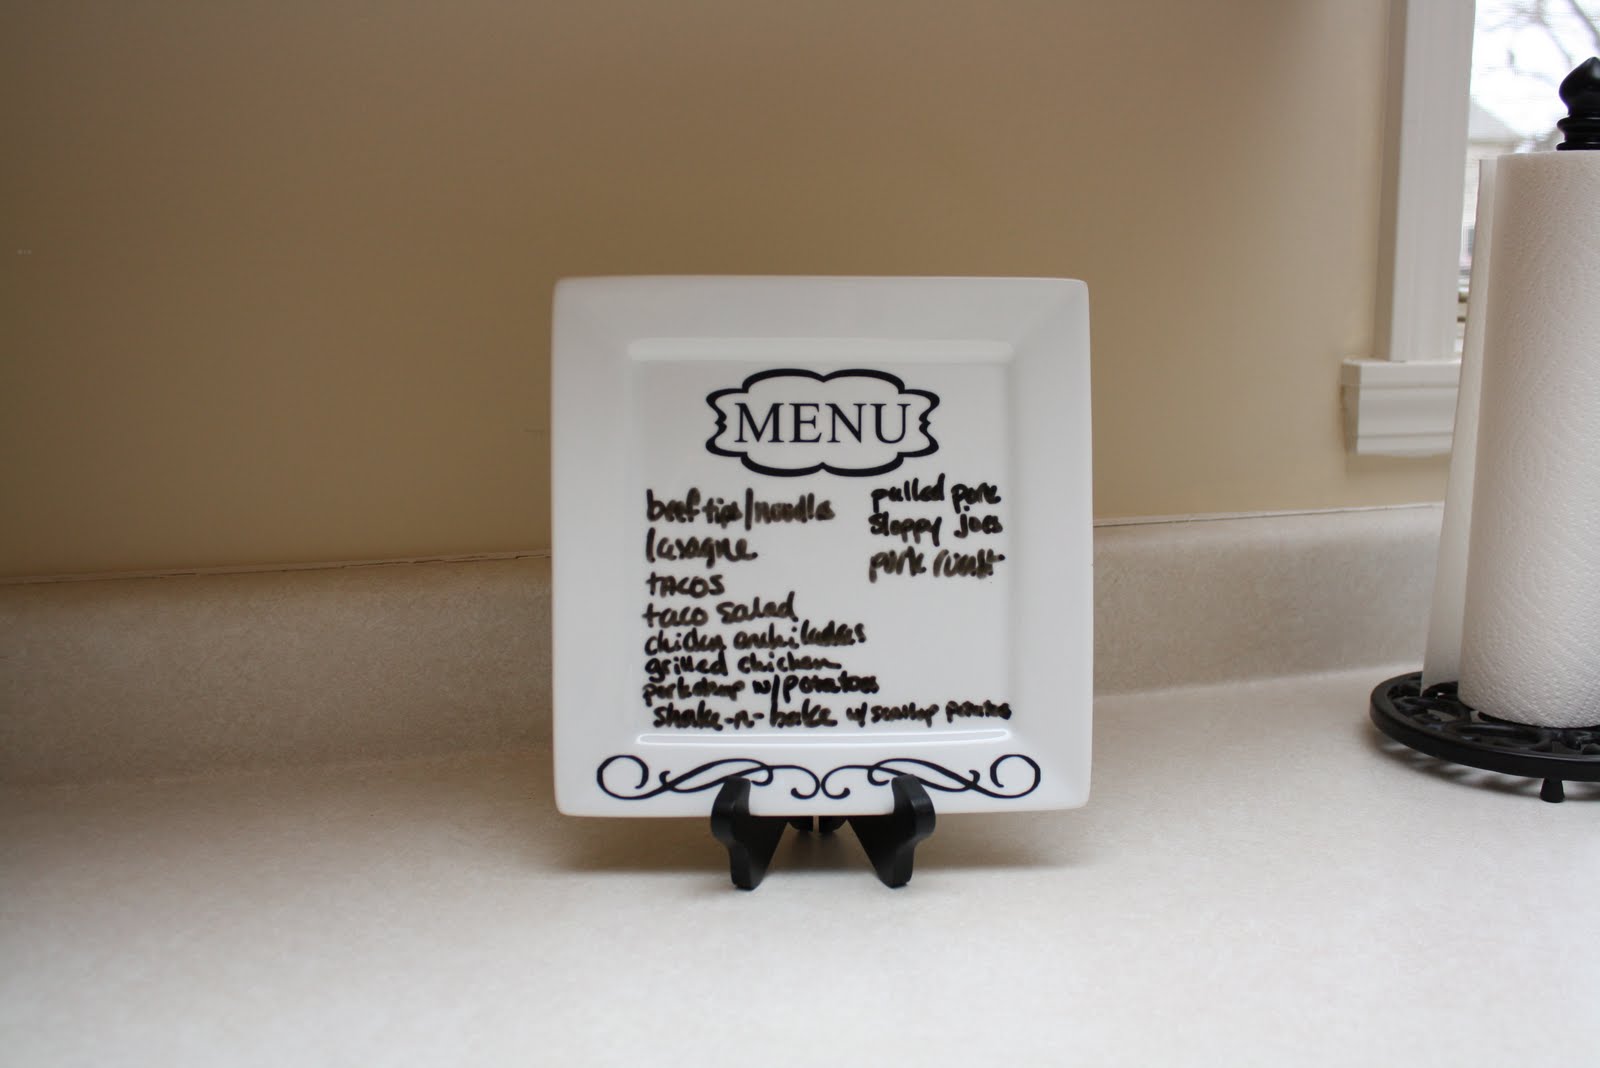 MENU
beef tips/noodles
lasagne
TACOS
taco salad
chicken enchiladas
grilled chicken
w/potatoes
shake-n-bake w/ scallop potatoes
pulled pork
sloppy joes
pork roast